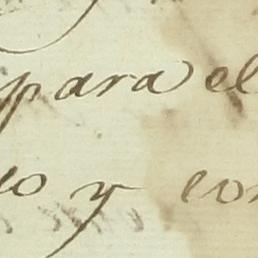 para el
y con